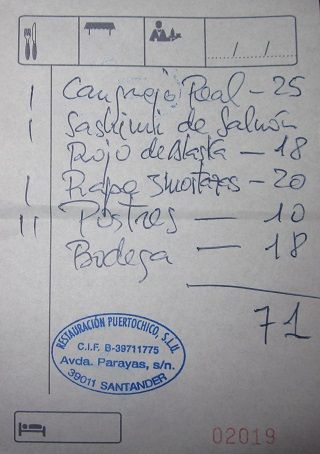 / / /
| Cangrejo Real - 25
| Sashimi de Salmón
Rojo de Alaska - 18
| Rape 3 mostazas - 20
|| Postres - 10
Bodega - 18
71
RESTAURACIÓN PUERTOCHICO, S.L.U.
C.I.F. B-39711775
Avda. Parayas, s/n.
39011 SANTANDER
02019